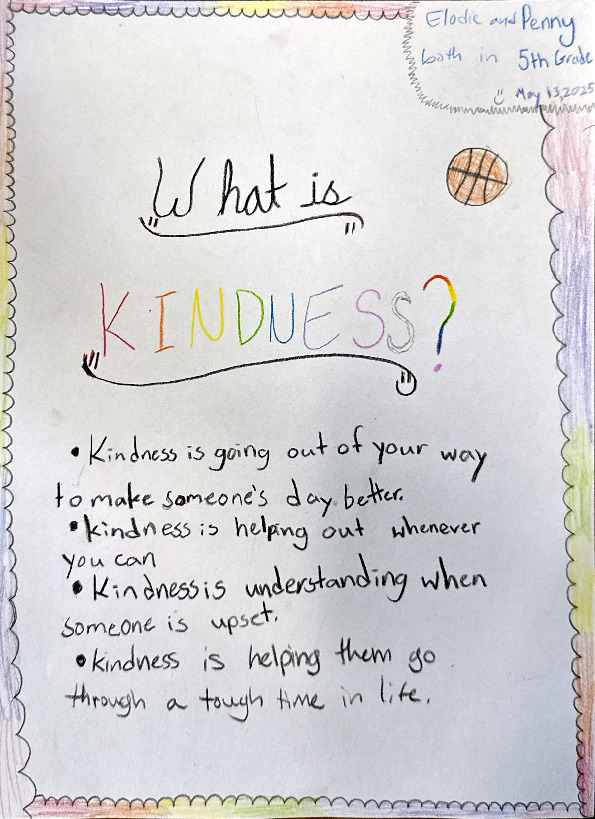 Elodie and Penny
both in 5th Grade
May 13, 2025
What is
KINDNESS?
• Kindness is going out of your way
to make someone's day better.
• kindness is helping out whenever
you can
• Kindness is understanding when
someone is upset.
• kindness is helping them go
through a tough time in life.